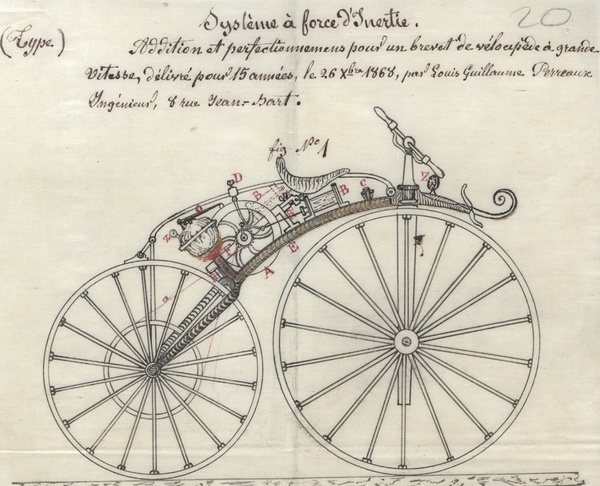 20
Système à force d'Inertie.
(Type.)
Addition et perfectionnemens pour un brevet de vélocipède à grande
Vitesse, délivré pour 15 années, le 26 Xbre 1868, par Louis Guillaume Perreaux
Ingénieur, 8 rue Jean-Bart.
fig No 1
D
B
B
C
E
A
a